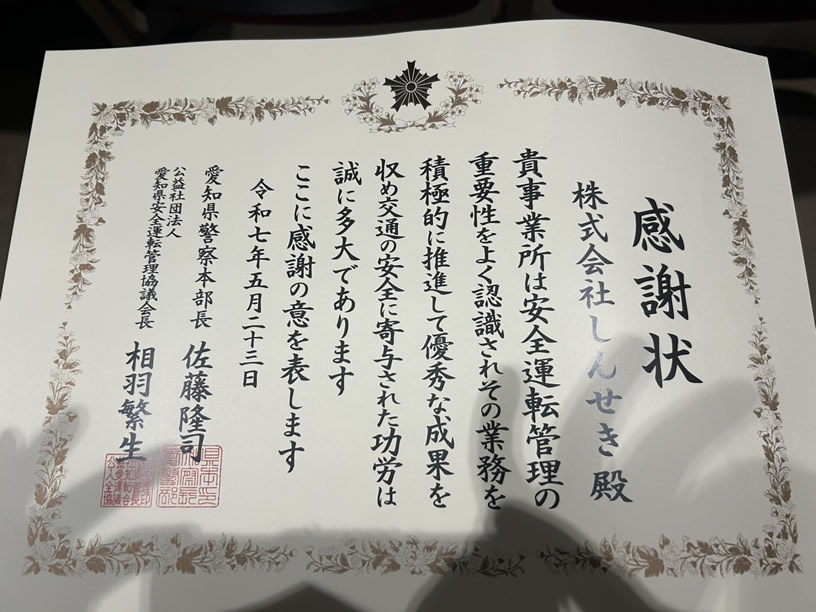 感謝状
株式会社しんせき殿
貴事業所は安全運転管理の
重要性をよく認識されその業務を
積極的に推進して優秀な成果を
収め交通の安全に寄与された功労は
誠に多大であります
ここに感謝の意を表します
令和七年五月二十三日
愛知県警察本部長 佐藤隆司
公益社団法人
愛知県安全運転管理協議会長 相羽繁生